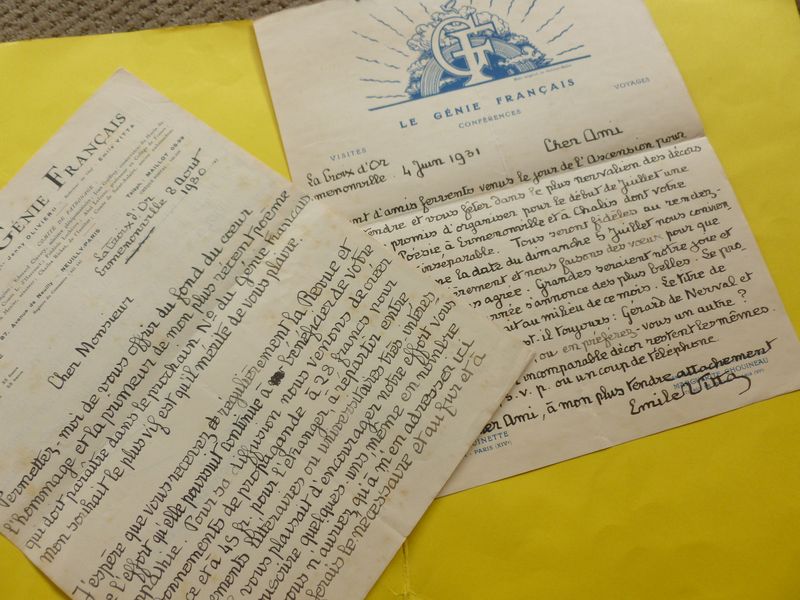 GÉNIE FRANÇAIS
Emile VITTA
COMITÉ DE PATRONAGE
NEUILLY-PARIS
Téléph. MAILLOT
La Croix d'Or
Ermenonville 8 Août
1930
Cher Monsieur
Permettez-moi de vous offrir du fond du cœur
l'hommage et la primeur de mon plus récent poème
qui doit paraître dans le prochain N° du Génie Français
Mon souhait le plus vif est qu'il mérite de vous plaire.
J'espère que vous recevez régulièrement la Revue et
l'effort qu'elle poursuit continue à bénéficier de votre
pathie. Pour sa diffusion nous venons de créer
onnements de propagande à 28 francs pour
ce et à 45 fr. pour l'étranger, à répartir entre
ements littéraires ou universitaires très intéres
vous plaisait d'encourager notre effort vous
ouscrire quelques-uns, même en nombre
us n'auriez qu'à m'en adresser ici
ferais le nécessaire et au fur et à
GF
LE GÉNIE FRANÇAIS
VISITES
CONFÉRENCES
VOYAGES
La Croix d'Or
Ermenonville. 4 Juin 1931
Cher Ami
nt d'amis fervents venus le jour de l'Ascension pour
endre et vous fêter dans le plus nervalien des décors
promis d'organiser pour le début de Juillet une
Poésie à Ermenonville et à Chalis dont votre
inséparable. Tous seront fidèles au rendez-
ne la date du dimanche 5 Juillet nous convien
èrement et nous faisons des vœux pour que
s agrée. Grandes seraient notre joie et
née s'annonce des plus belles. Le pro-
ut au milieu de ce mois. Le titre de
st-il toujours: Gérard de Nerval et
ou en préférez-vous un autre ?
incomparable décor restent les mêmes.
s.v.p. ou un coup de téléphone.
her Ami, à mon plus tendre attachement
Emile Vitta
MARGUERITE CHOUINEAU
INETTE
- PARIS (XIVe)